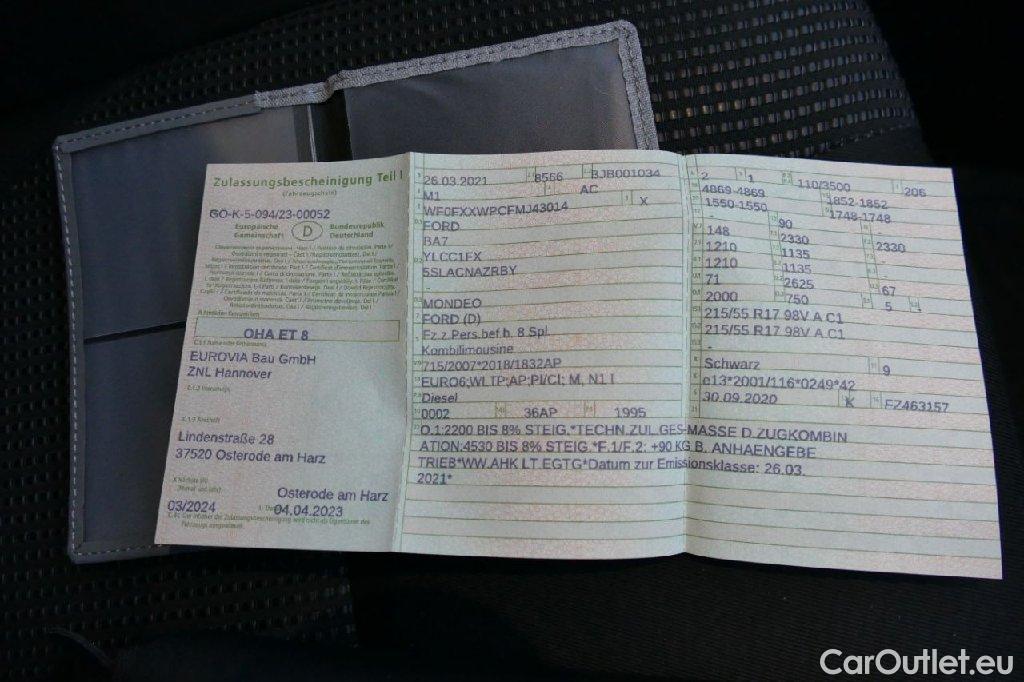 Zulassungsbescheinigung Teil I
(Fahrzeugschein)
GÖ-K-5-094/23-00052
Europäische Gemeinschaft
D
Bundesrepublik Deutschland
OHA ET 8
EUROVIA Bau GmbH
ZNL Hannover
Lindenstraße 28
37520 Osterode am Harz
Osterode am Harz
03/2024
04.04.2023
26.03.2021 8566 BJB001034
M1 AC
WF0FXXWPCFMJ43014 X
FORD
BA7
YLCC1FX
5SLACNAZRBY
-
MONDEO
FORD (D)
Fz.z.Pers.bef.b. 8 Spl.
Kombilimousine
715/2007*2018/1832AP
EURO6;WLTP;AP;PI/CI; M, N1 I
Diesel
0002 36AP 1995
2 1 110/3500 206
4869-4869 1852-1852
1550-1550 1748-1748
-
148 90
1210 2330 2330
1210 1135
71 1135 -
2000 2625 67
750 5 -
215/55 R17 98V A C1
215/55 R17 98V A C1
-
Schwarz 9
e13*2001/116*0249*42
30.09.2020 K FZ463157
O.1:2200 BIS 8% STEIG.*TECHN.ZUL.GES-MASSE D.ZUGKOMBIN
ATION:4530 BIS 8% STEIG.*F.1/F.2: +90 KG B. ANHAENGEBE
TRIEB*WW.AHK LT.EGTG*Datum zur Emissionsklasse: 26.03.
2021*
CarOutlet.eu